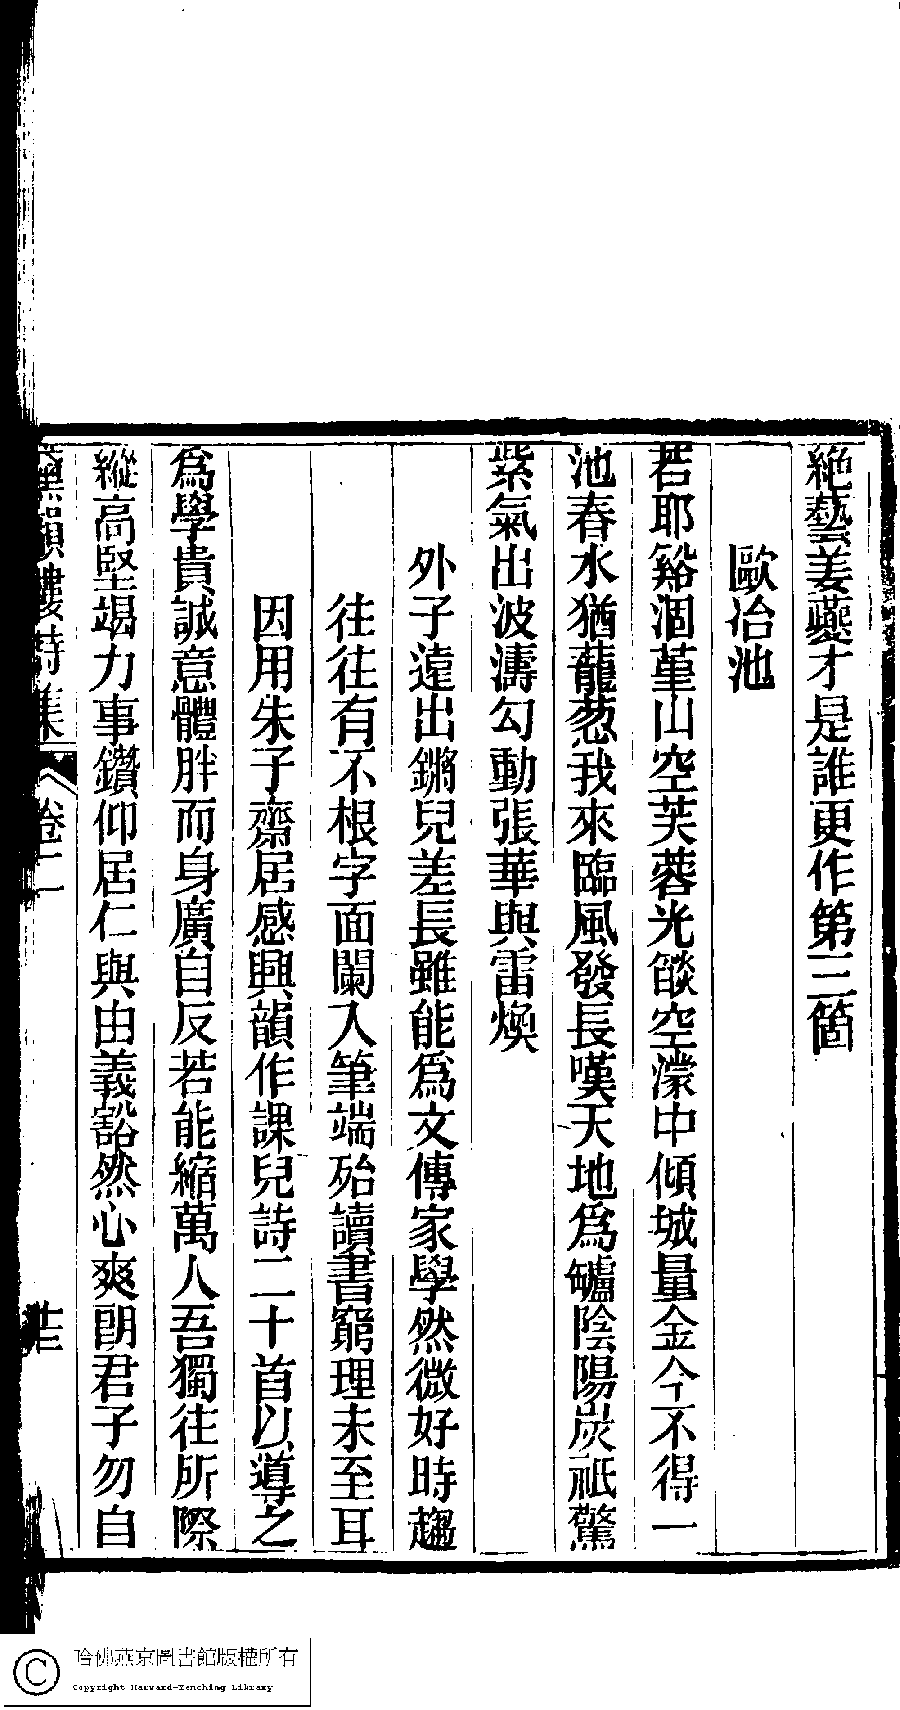 絶藝姜蘷才是誰更作第三箇
歐冶池
若耶谿涸堇山空芙蓉光燄空濛中傾城量金今不得一
池春水猶蘢葱我來臨風發長嘆天地為鑪陰陽炭祇驚
紫氣出波濤勾動張華與雷煥
外子遠出鏘兒差長雖能為文傳家學然微好時趨
往往有不根字面闌入筆端殆讀書窮理未至耳
因用朱子齋居感興韻作課兒詩二十首以導之
為學貴誠意體胖而身廣自反若能縮萬人吾獨往所際
縱高堅竭力事鑽仰居仁與由義豁然心爽朗君子勿自
韻樓詩集
卷二
哈佛燕京圖書館版權所有
Copyright Harvard-Yenching Library